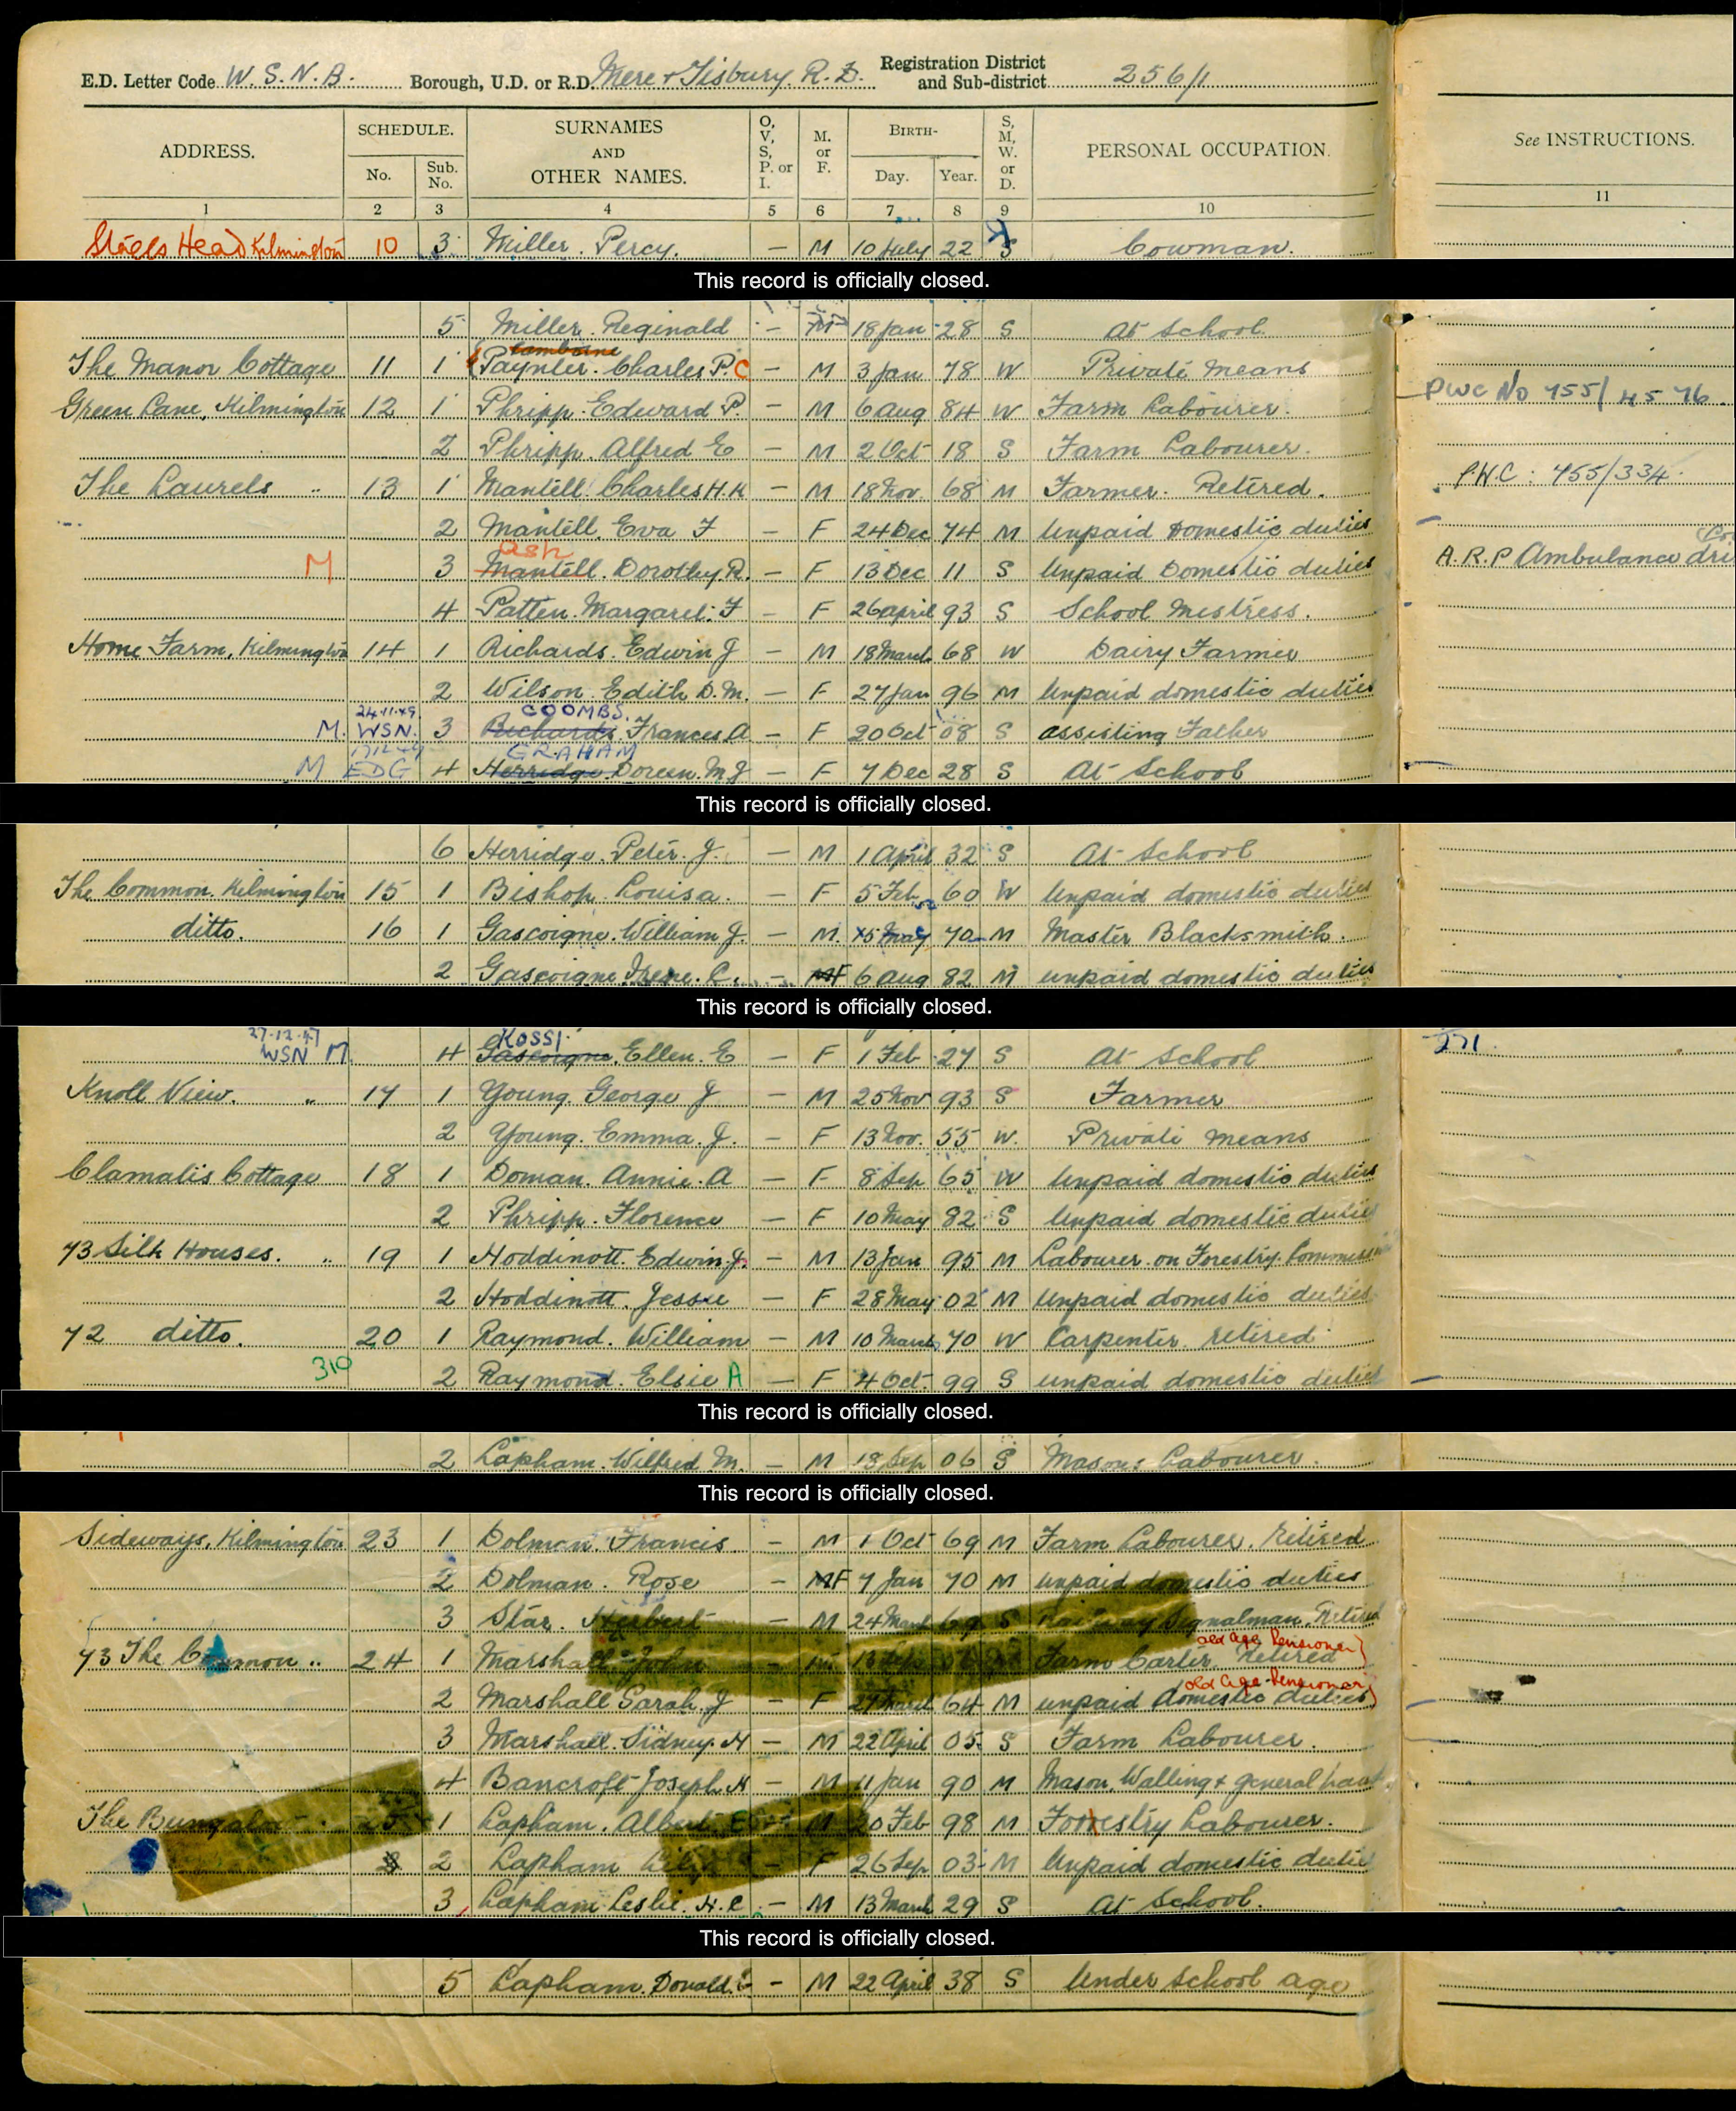 E.D. Letter Code W.S.N.B. Borough, U.D. or R.D. Mere & Tisbury. R.D. Registration District and Sub-district 256/1
ADDRESS. SCHEDULE. No. Sub. No. SURNAMES AND OTHER NAMES. O, V, S, P. or I. M. or F. BIRTH- Day. Year. S, M, W. or D. PERSONAL OCCUPATION. See INSTRUCTIONS.
1 2 3 4 5 6 7 8 9 10 11
Head Kilmington 10 3 Miller. Percy. – M 10 July 22 S Cowman.
This record is officially closed.
5 Miller. Reginald – M 18 Jan 28 S At School
The Manor Cottage 11 1 Paynter. Charles P. C – M 3 Jan 78 W Private Means
PWC No 755/4576.
Green Lane, Kilmington 12 1 Phripp. Edward P. – M 6 Aug 84 W Farm Labourer.
2 Phripp. Alfred E – M 2 Oct 18 S Farm Labourer.
The Laurels " 13 1 Mantell. Charles H.K – M 18 Nov. 68 M Farmer. Retired.
P.W.C: 755/334.
2 Mantell. Eva F – F 24 Dec 74 M Unpaid Domestic duties
Ash
M 3 Mantell. Dorothy R. – F 13 Dec 11 S Unpaid Domestic duties A.R.P Ambulance
4 Patten. Margaret. F – F 26 April 93 S School Mistress.
Home Farm, Kilmington 14 1 Richards. Edwin J – M 18 March 68 W Dairy Farmer
2 Wilson. Edith D.M. – F 27 Jan 96 M Unpaid domestic duties
24.11.49. COOMBS.
M. WSN. 3 Richards. Frances A – F 20 Oct 08 S assisting Father
GRAHAM
M EDG 4 Herridge. Doreen. M J – F 7 Dec 28 S At School
This record is officially closed.
6 Herridge. Peter. J. – M 1 April 32 S At School
The Common. Kilmington 15 1 Bishop. Louisa. – F 5 Feb 60 W Unpaid domestic duties
ditto. 16 1 Gascoigne. William J. – M. 15 May 70 M Master Blacksmith.
2 Gascoigne. Irene. – F 6 Aug 82 M unpaid domestic duties
This record is officially closed.
27.12.47 ROSSI.
WSN M 4 Gascoigne. Ellen. E – F 1 Feb 27 S At School
Knoll View. " 17 1 Young. George J – M 25 Nov 93 S Farmer
2 Young. Emma. J. – F 13 Nov. 55 W. Private means
Clamatis Cottage 18 1 Doman. Annie. A – F 8 Sep 65 W Unpaid domestic duties
2 Phripp. Florence – F 10 May 82 S Unpaid domestic duties
73 Silk Houses. " 19 1 Hoddinott. Edwin. J. – M 13 Jan 95 M Labourer on Forestry Commission
2 Hoddinott. Jessie – F 28 May 02 M Unpaid domestic duties
72 ditto. 20 1 Raymond. William – M 10 March 70 W Carpenter. retired
310 2 Raymond. Elsie A – F 4 Oct. 99 S unpaid domestic duties
This record is officially closed.
2 Lapham. Wilfred M. – M 18 Sep 06 S Masons Labourer.
This record is officially closed.
Sideways, Kilmington 23 1 Dolman. Francis. – M 1 Oct 69 M Farm Labourer. Retired
2 Dolman. Rose – F 7 Jan 70 M unpaid domestic duties
3 Star. Herbert – M 24 March 69 S Railway Signalman. Retired
old age Pensioner
73 The Common .. 24 1 Marshall. John – Farm Carter. Retired
old age Pensioner
2 Marshall Sarah. J – F 27 March 64 M unpaid domestic duties
3 Marshall. Sidney. H – M 22 April 05 S Farm Labourer.
4 Bancroft Joseph. H – M 11 Jan 90 M Mason. Walling & general
The Bungalow 25 1 Lapham. Albert. E – M 20 Feb 98 M Forrestry Labourer.
2 Lapham – F 26 Sep 03 M Unpaid domestic duties
3 Lapham. Leslie. H.C – M 13 March 29 S At School.
This record is officially closed.
5 Lapham. Donald. – M 22 April 38 S Under school age